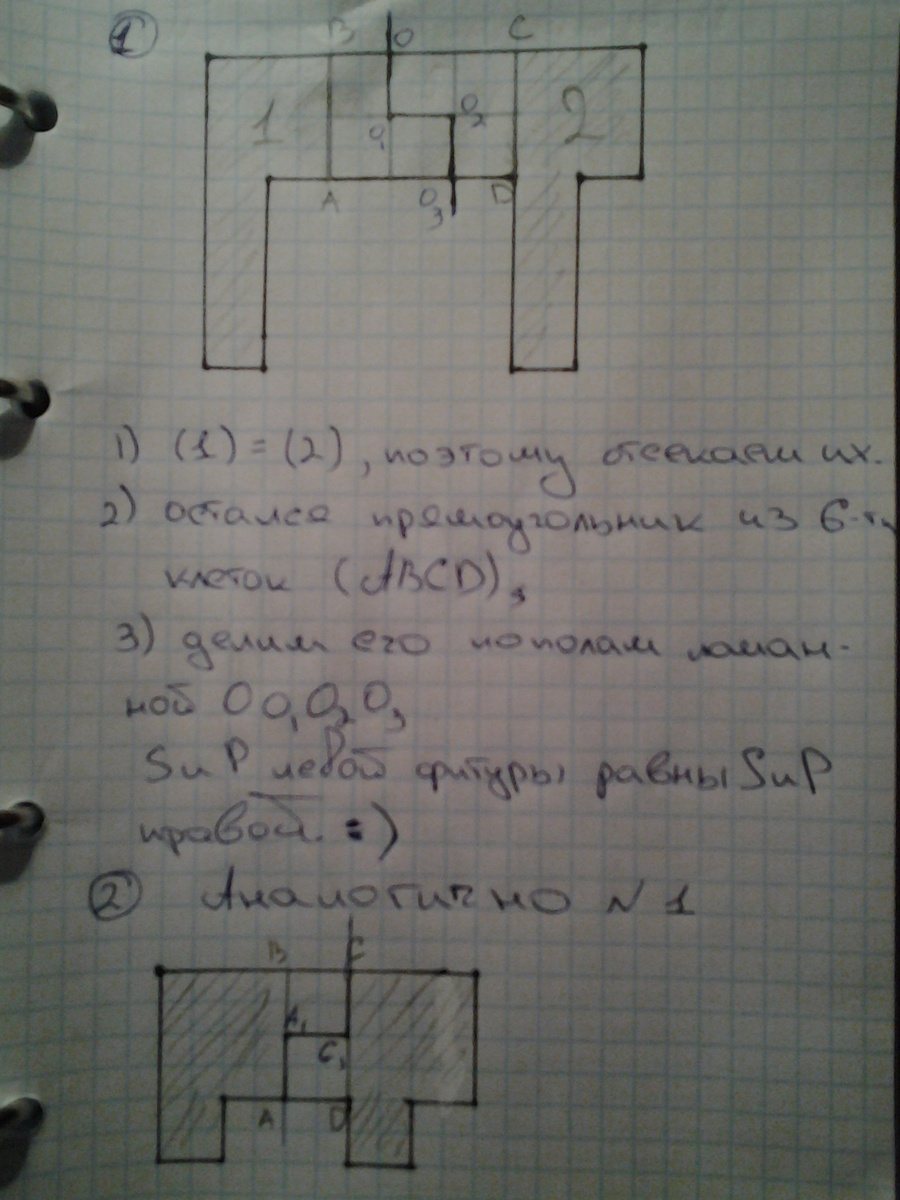 1
B O C
1 2
O₁ O₂
A O₃ D
1) (1) = (2), поэтому отсекаем их.
2) остался прямоугольник из 6-ти
клеток (ABCD),
3) делим его пополам ломан-
ной OO₁O₂O₃
S и P левой фигуры равны S и P
правой. =)
2 Аналогично N 1
B C
A₁
C₁
A D